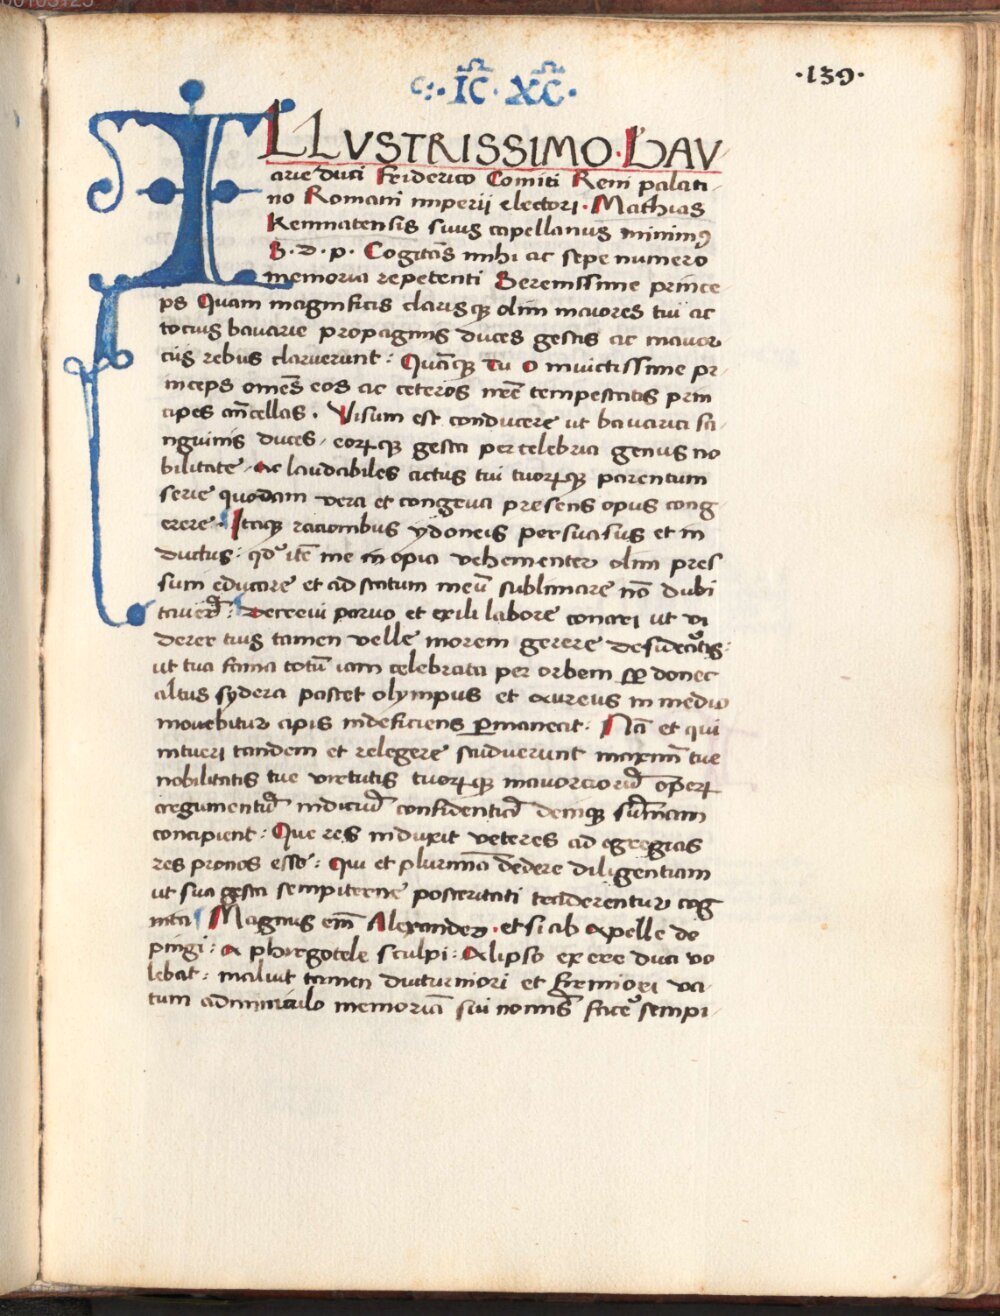 ·139·
·IC· XC·
ILLVSTRISSIMO·BAV
arie duci Friderico Comiti Reni palati
no Romani imperii electori· Mathias
Kemnatensis suus capellanus minimꝰ
S·d·p· Cogitās mihi ac sepe numero
memoria repetenti Serenissime prince
ps Quam magnificis clarisqꝫ olim maiores tui ac
tocius bavarie propaginis duces gestis ac mavor
ciis rebus claruerunt: Quāqꝫ Tu O invictissime pr
inceps omēs eos ac ceteros nr̄e tempestatis prin
cipes āncellas. Visum est conducere ut bavarici sa
nguinis duces, eorꝝqꝫ gesta percelebria genus no
bilitate, Ac laudabiles actus tui tuorꝝqꝫ parentum
serie quodam vera et congeua presens opus cong
erere· Itaqꝫ racionibus ydoneis persuasus et in
ductus: qđ itē me inopia vehementer olim pres
sum educare et ad statum meū sublimare nō dubi
taver̄: Decrevi parvo et exili labore conari ut vi
derer tuis tamen velle morem gerere desiderātis:
ut tua fama totū iam celebrata per orbem ꝑ donec
altus sydera poscet olympus et aureus in medio
movebitur apis indeficiens ꝑmaneat: Nā et qui
intueri tandem et relegere studuerunt maximā tue
nobilitatis tue virtutis tuorꝝqꝫ mavorciorū operꝝ
argumentū indiciū confidenticū deniqꝫ sūmam
concipient: Que res induxit veteres ad egregias
res pronos esse: Qui et plurimā dedere diligentiam
ut sua gesta sempiterne posteritati traderentur cog
nita Magnus em̄ Alexander· et si ab Apelle de
pingi: A phirgotele sculpi: A lipso ex ere duci vo
lebat: maluit tamen diuturniori et firmiori va
tum adminiculo memoriā sui nominis̄ facē sempi